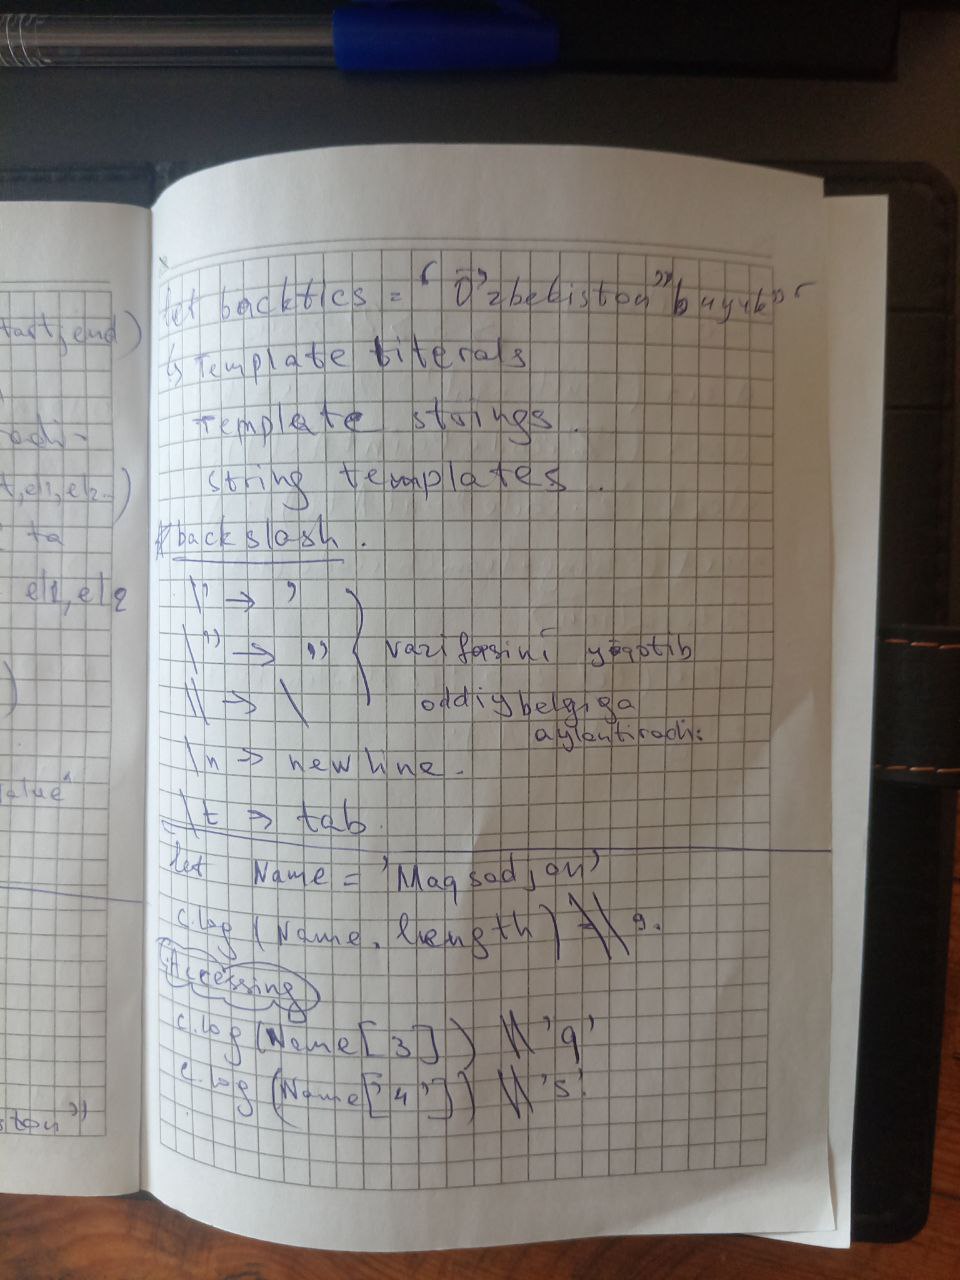 tart, end)
odi-
t, el1, el2..)
ta
el1, el2
)
value"
ston"
let backtics = ` O'zbekiston "buyuk" `
↳ Template literals
Template strings.
string templates.
backslash.
\' → '
\" → " vazifasini yo'qotib
\\ → \ oddiy belgiga
aylantiradi.
\n → new line.
\t → tab.
let Name = 'Maqsadjon'
c.log (Name.length) \\ 9.
Accessing
c.log (Name[3]) \\ 'q'
c.log (Name['4']) \\ 's'